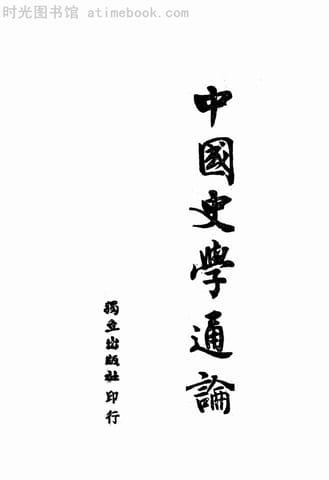 时光图书馆 atimebook.com
中國史學通論
獨立出版社印行